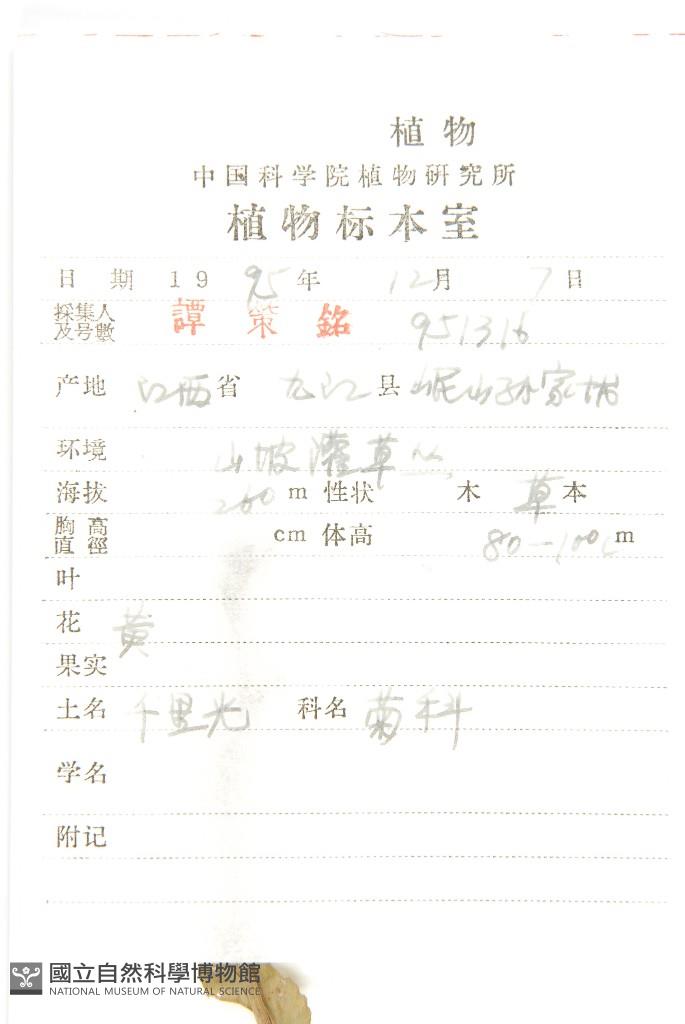 植物
中国科学院植物研究所
植物标本室
日期 1995年 12月 7日
採集人及号數 譚策銘 951316
产地 江西省 九江县 岷山孙家
环境 山坡灌草丛
海拔 260 m 性状 木 草 本
胸高直徑 cm 体高 80—100c m
叶
花 黄
果实
土名 千里光 科名 菊科
学名
附记
國立自然科學博物館
NATIONAL MUSEUM OF NATURAL SCIENCE